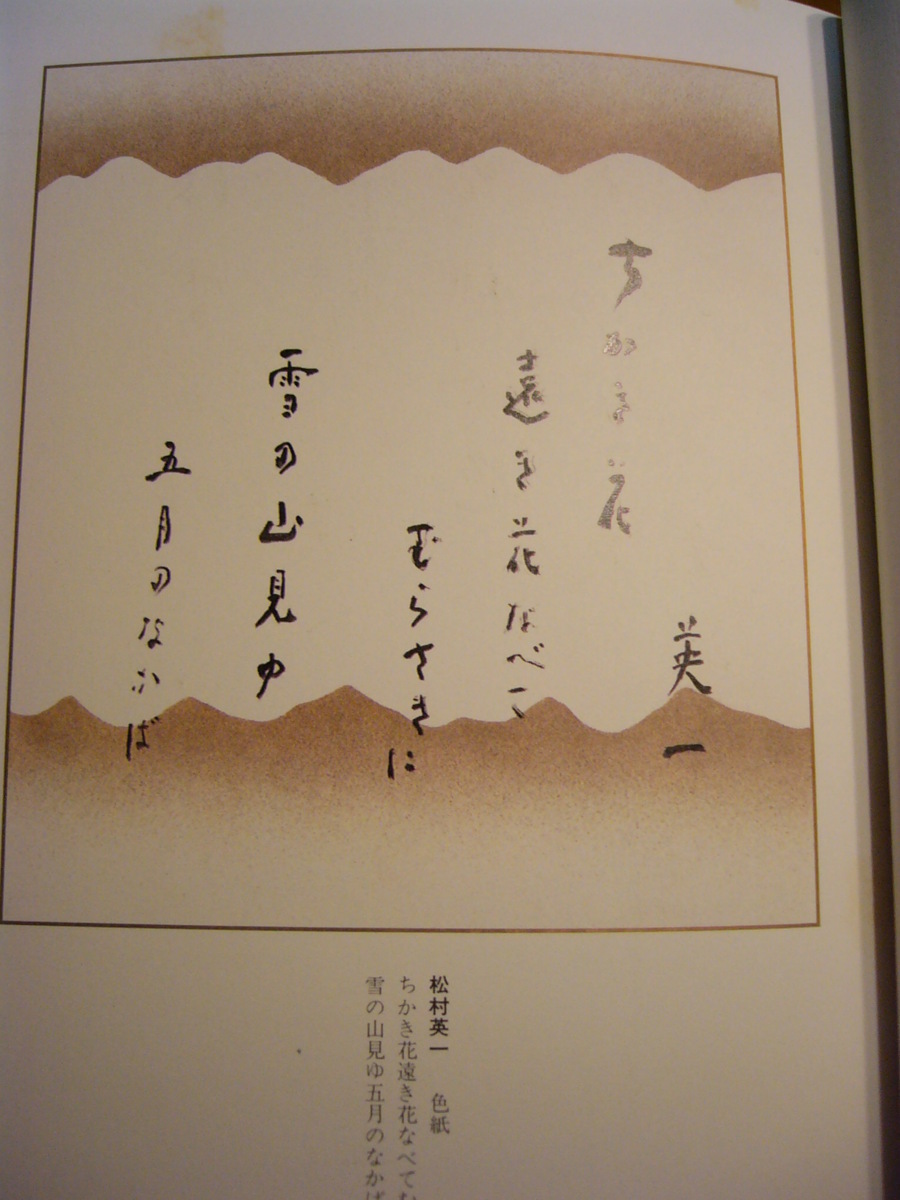 英一
ちかき花
遠き花なべて
むらさきに
雪の山見ゆ
五月のなかば
松村英一　色紙
ちかき花遠き花なべてむ
雪の山見ゆ五月のなかば